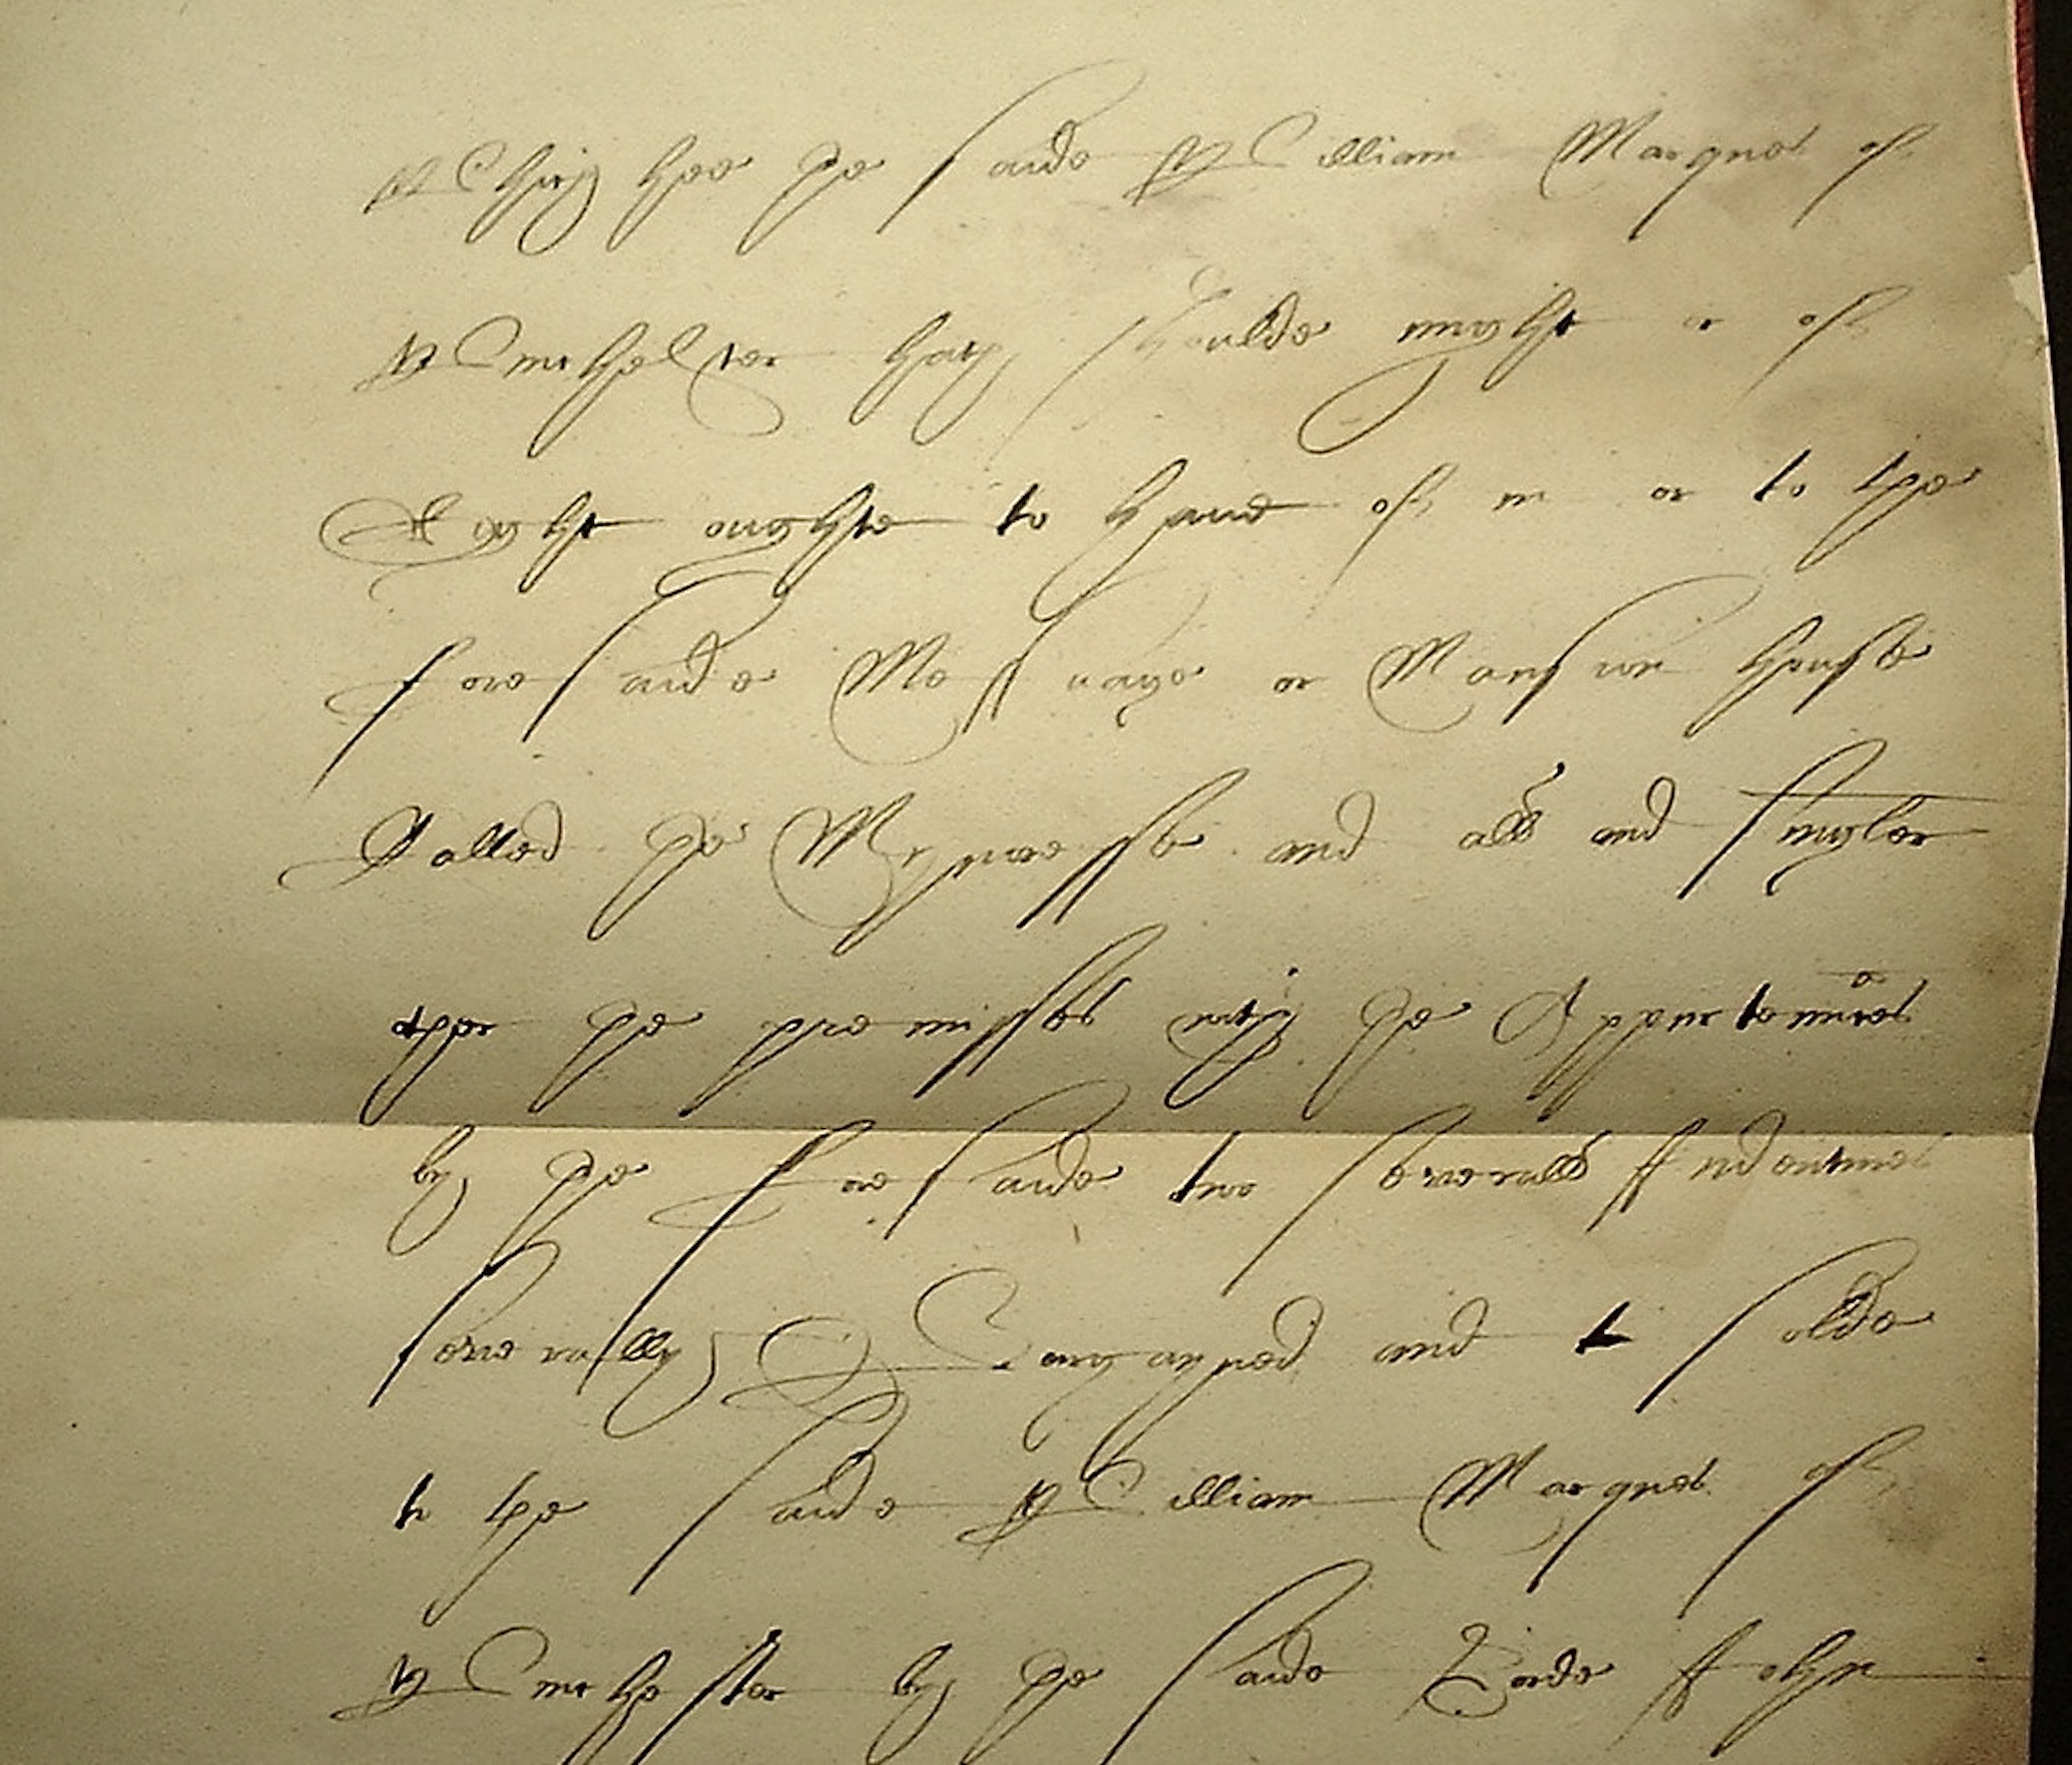 Which hee the saide William Marques of
Winchester hath shoulde might or of
Right oughte to have of in or to the
foresaide Messuage or Mansion house
Called the Mynoresse and all and singler
other the premisses with the Appurtennces
by the foresaide two severall Indentures
severally Bargayned and solde
to the saide William Marques of
Winchester by the saide Lorde John